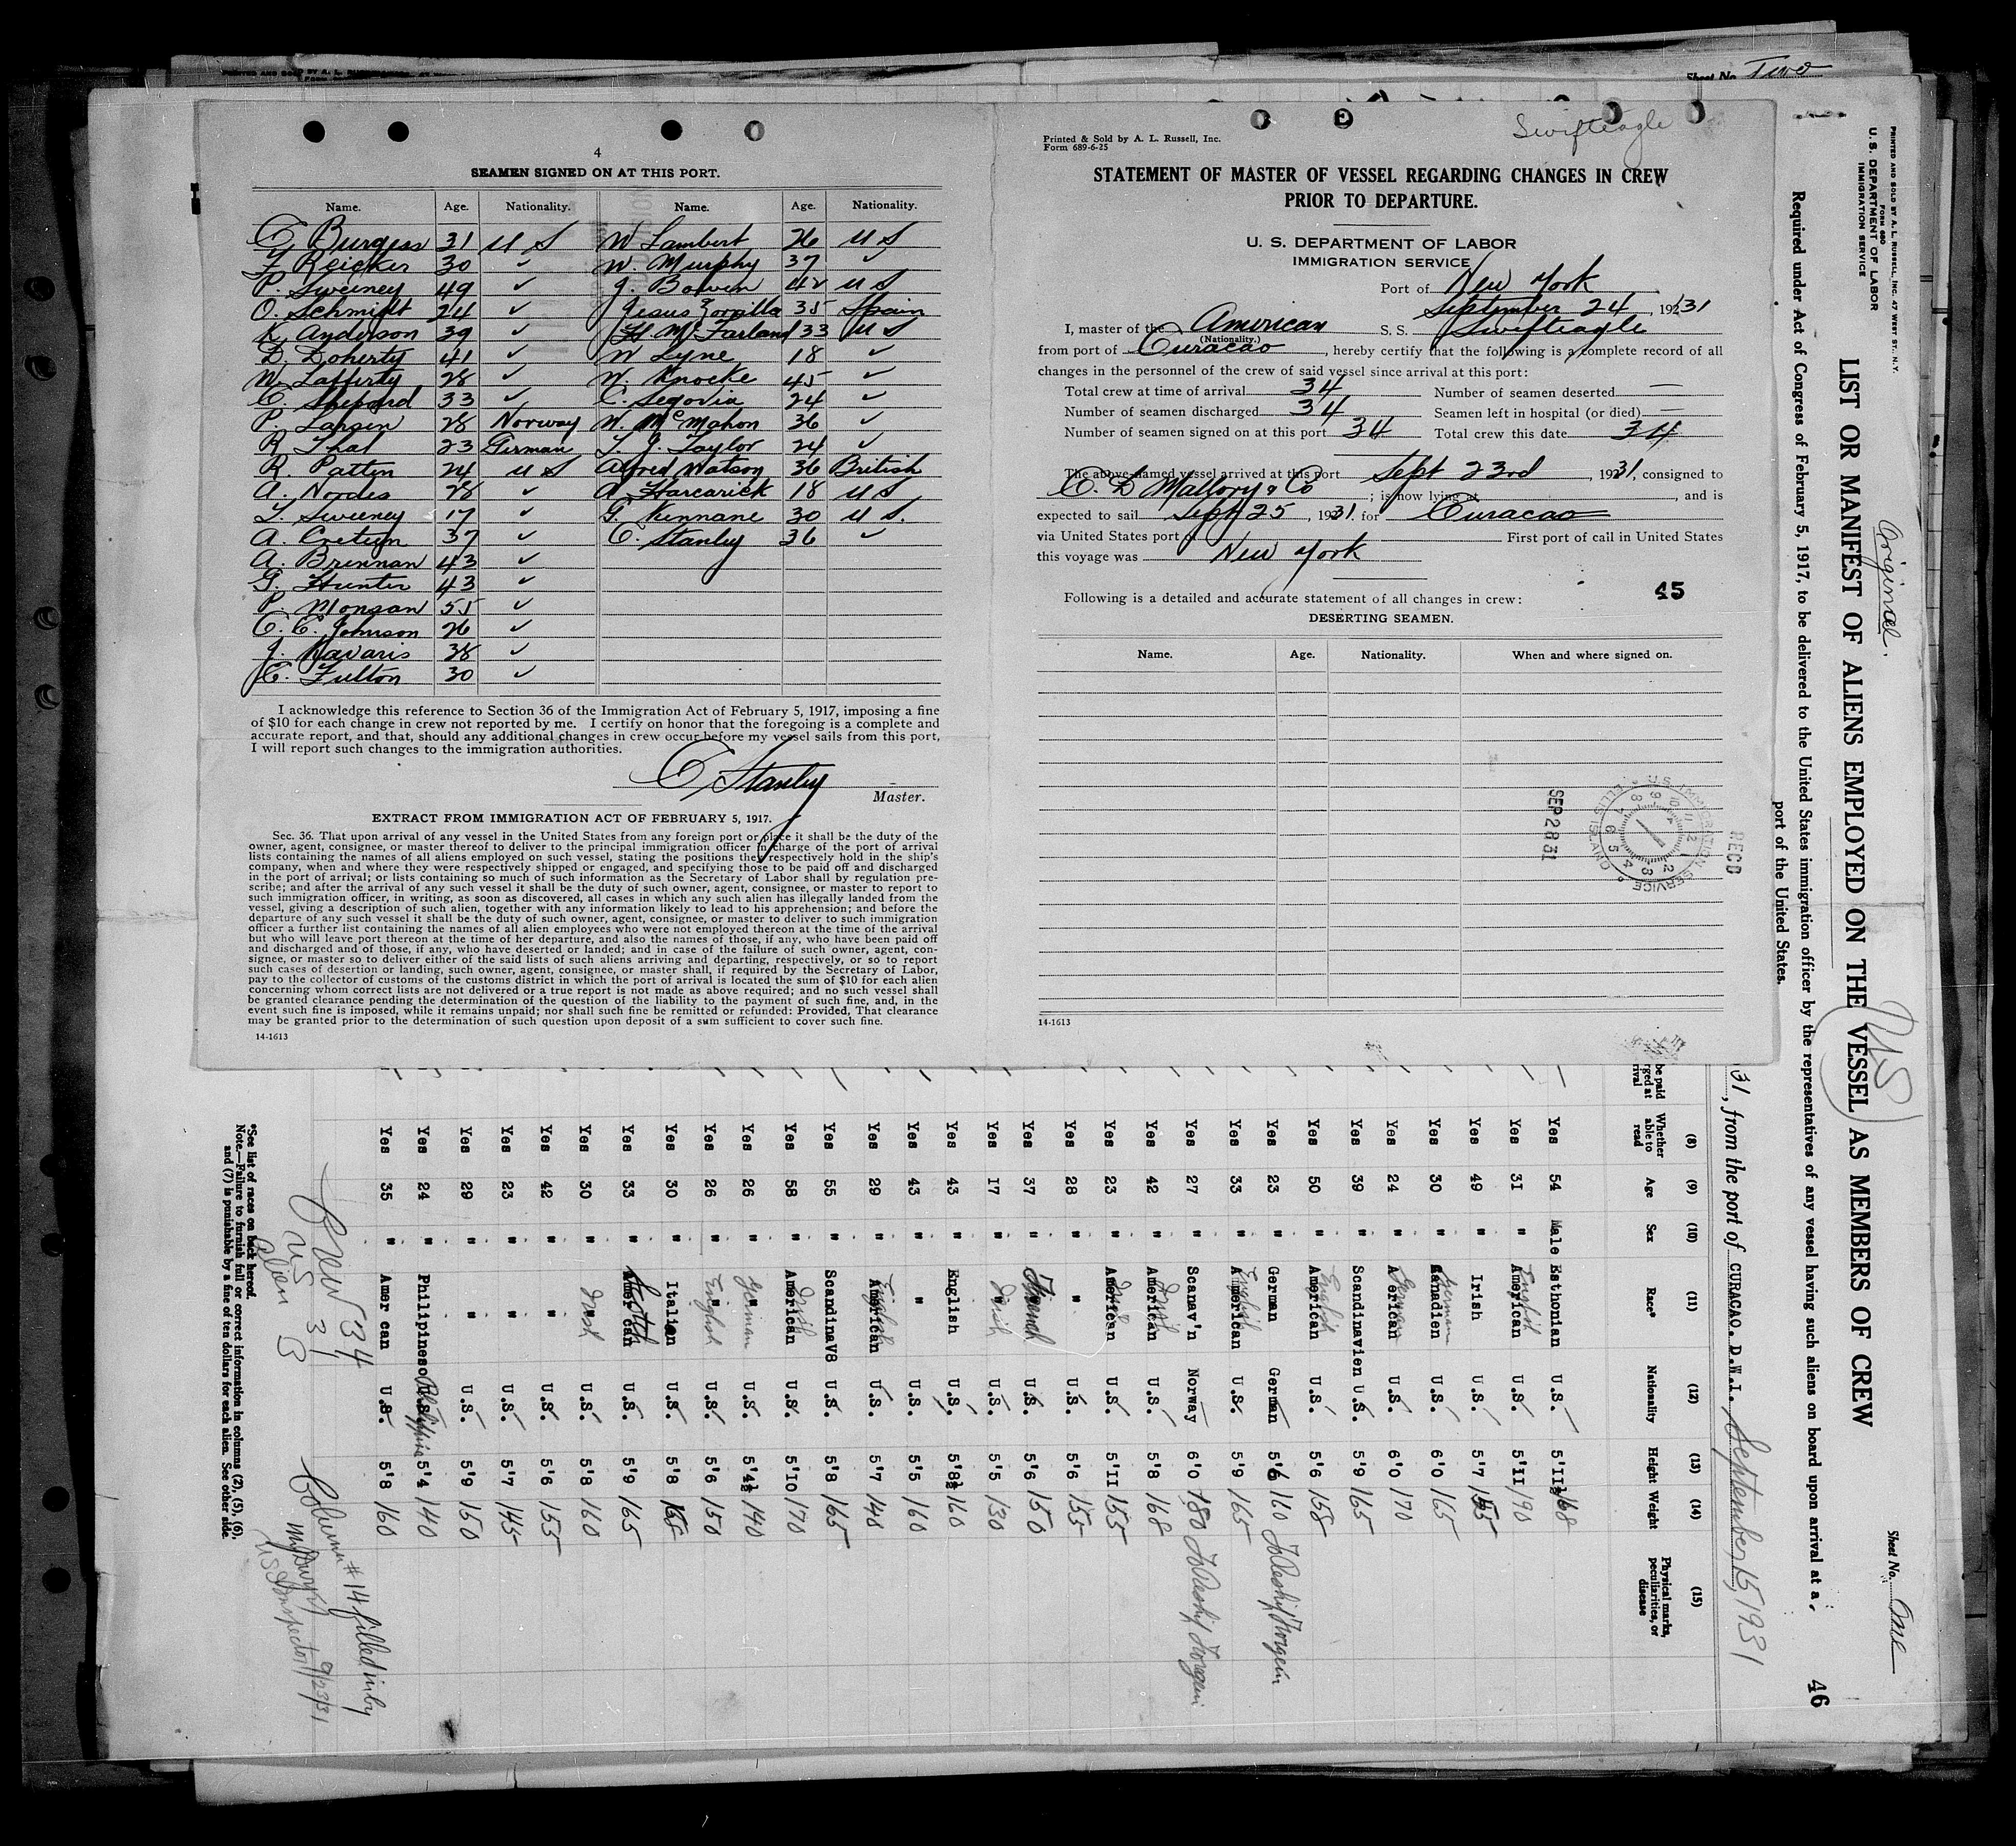 PRINTED AND SOLD BY A. L. RUSSELL
Sheet No. Two
4
SEAMEN SIGNED ON AT THIS PORT.
Name. Age. Nationality. Name. Age. Nationality.
C Burgess 31 U S W Lambert 26 U S
F Reicker 30 ✓ W. Murphy 37 ✓
P. Sweeney 49 ✓ J. Bowen 42 U S
O. Schmidt 24 ✓ Jesus Zorrilla 35 Spain
K Anderson 39 ✓ H McFarland 33 U S
D. Doherty 41 ✓ W Lyne 18 ✓
W. Lafferty 28 ✓ W. Knocke 45 ✓
C. Shepard 33 ✓ C. Segovia 24 ✓
P. Larsen 28 Norway W. McMahon 36 ✓
R Thal 23 German T. J. Taylor 24 ✓
R. Patten 24 U S Alfred Watson 36 British
A. Nordes 28 ✓ A Harcarick 18 U S
T. Sweeney 17 ✓ G. Kennane 30 U S.
A. Cretien 37 ✓ C. Stanley 36 ✓
A. Brennan 43 ✓
G. Hunter 43 ✓
P. Monsan 55 ✓
C. E. Johnson 26 ✓
J. Navaris 38 ✓
C. Fulton 30 ✓
I acknowledge this reference to Section 36 of the Immigration Act of February 5, 1917, imposing a fine
of $10 for each change in crew not reported by me. I certify on honor that the foregoing is a complete and
accurate report, and that, should any additional changes in crew occur before my vessel sails from this port,
I will report such changes to the immigration authorities.
C Stanley
Master.
EXTRACT FROM IMMIGRATION ACT OF FEBRUARY 5, 1917.
Sec. 36. That upon arrival of any vessel in the United States from any foreign port or place it shall be the duty of the
owner, agent, consignee, or master thereof to deliver to the principal immigration officer in charge of the port of arrival
lists containing the names of all aliens employed on such vessel, stating the positions they respectively hold in the ship's
company, when and where they were respectively shipped or engaged, and specifying those to be paid off and discharged
in the port of arrival; or lists containing so much of such information as the Secretary of Labor shall by regulation pre-
scribe; and after the arrival of any such vessel it shall be the duty of such owner, agent, consignee, or master to report to
such immigration officer, in writing, as soon as discovered, all cases in which any such alien has illegally landed from the
vessel, giving a description of such alien, together with any information likely to lead to his apprehension; and before the
departure of any such vessel it shall be the duty of such owner, agent, consignee, or master to deliver to such immigration
officer a further list containing the names of all alien employees who were not employed thereon at the time of the arrival
but who will leave port thereon at the time of her departure, and also the names of those, if any, who have been paid off
and discharged and of those, if any, who have deserted or landed; and in case of the failure of such owner, agent, con-
signee, or master so to deliver either of the said lists of such aliens arriving and departing, respectively, or so to report
such cases of desertion or landing, such owner, agent, consignee, or master shall, if required by the Secretary of Labor,
pay to the collector of customs of the customs district in which the port of arrival is located the sum of $10 for each alien
concerning whom correct lists are not delivered or a true report is not made as above required; and no such vessel shall
be granted clearance pending the determination of the question of the liability to the payment of such fine, and, in the
event such fine is imposed, while it remains unpaid; nor shall such fine be remitted or refunded: Provided, That clearance
may be granted prior to the determination of such question upon deposit of a sum sufficient to cover such fine.
14-1613
Swifteagle
Printed & Sold by A. L. Russell, Inc.
Form 689-6-25
STATEMENT OF MASTER OF VESSEL REGARDING CHANGES IN CREW
PRIOR TO DEPARTURE.
U. S. DEPARTMENT OF LABOR
IMMIGRATION SERVICE
Port of New York
September 24, 19231
I, master of the American S. S. Swifteagle
(Nationality.)
from port of Curacao, hereby certify that the following is a complete record of all
changes in the personnel of the crew of said vessel since arrival at this port:
Total crew at time of arrival 34 Number of seamen deserted —
Number of seamen discharged 34 Seamen left in hospital (or died) —
Number of seamen signed on at this port 34 Total crew this date 34
The above-named vessel arrived at this port Sept 23rd, 19231, consigned to
C. D Mallory & Co; is now lying at , and is
expected to sail Sept 25, 19231. for Curacao
via United States port of First port of call in United States
this voyage was New York
45
Following is a detailed and accurate statement of all changes in crew:
DESERTING SEAMEN.
Name. Age. Nationality. When and where signed on.
RECD
U.S. IMMIGRATION SERVICE ELLIS ISLAND
SEP 28 31
14-1613
PRINTED AND SOLD BY A. L. RUSSELL, INC. 47 WEST ST., N.Y.
FORM 680
U. S. DEPARTMENT OF LABOR
IMMIGRATION SERVICE
Original.
Sheet No. One
LIST OR MANIFEST OF ALIENS EMPLOYED ON THE VESSEL AS MEMBERS OF CREW
US
46
Required under Act of Congress of February 5, 1917, to be delivered to the United States immigration officer by the representatives of any vessel having such aliens on board upon arrival at a
port of the United States.
31, from the port of CURACAO. D.W.I. September 15 1931
(8) (9) (10) (11) (12) (13) (14) (15)
Whether able to read Age Sex Race* Nationality Height Weight Physical marks, peculiarities, or disease
Yes 54 Male Esthonian U.S. 5'11½ 168
Yes 31 " American English U.S. 5'11 190
Yes 49 " Irish U.S. 5'7 155
Yes 30 " Canadien German U.S. 6'0 165
Yes 24 " American German U.S. 6'0 170
Yes 39 " Scandinavien U.S. 5'9 165
Yes 50 " American English U.S. 5'6 158
Yes 23 " German German 5'6 160
Yes 33 " American English U.S. 5'9 165
Yes 27 " Scanav'n Norway 6'0 180
Yes 42 " American Irish U.S. 5'8 168
Yes 23 " American Irish U.S. 5'11 155
Yes 28 " " U.S. 5'6 155
Yes 37 " French U.S. 5'6 150
Yes 17 " " Irish U.S. 5'5 130
Yes 43 " English U.S. 5'8½ 160
Yes 43 " " U.S. 5'5 160
Yes 29 " American English U.S. 5'7 140
Yes 55 " Scandinav8 U.S. 5'8 165
Yes 58 " American Irish U.S. 5'10 170
Yes 26 " " German U.S. 5'4½ 140
Yes 26 " " English U.S. 5'6 150
Yes 30 " Italian U.S. 5'8 165
Yes 33 " American Scotch U.S. 5'9 165
Yes 30 " " Irish U.S. 5'8 160
Yes 42 " " U.S. 5'6 155
Yes 23 " " U.S. 5'7 145
Yes 29 " " U.S. 5'9 150
Yes 24 " Philipineso Philippine 5'4 140
Yes 35 " Amer can U.S. 5'8 160
Crew 34
US 31
Alien 3
Column #14 filled in by
US Inspector 9/23/31
*See list of races on back hereof.
Note.—Failure to furnish full or correct information in columns (2), (5), (6),
and (7) is punishable by a fine of ten dollars for each alien. See other side.